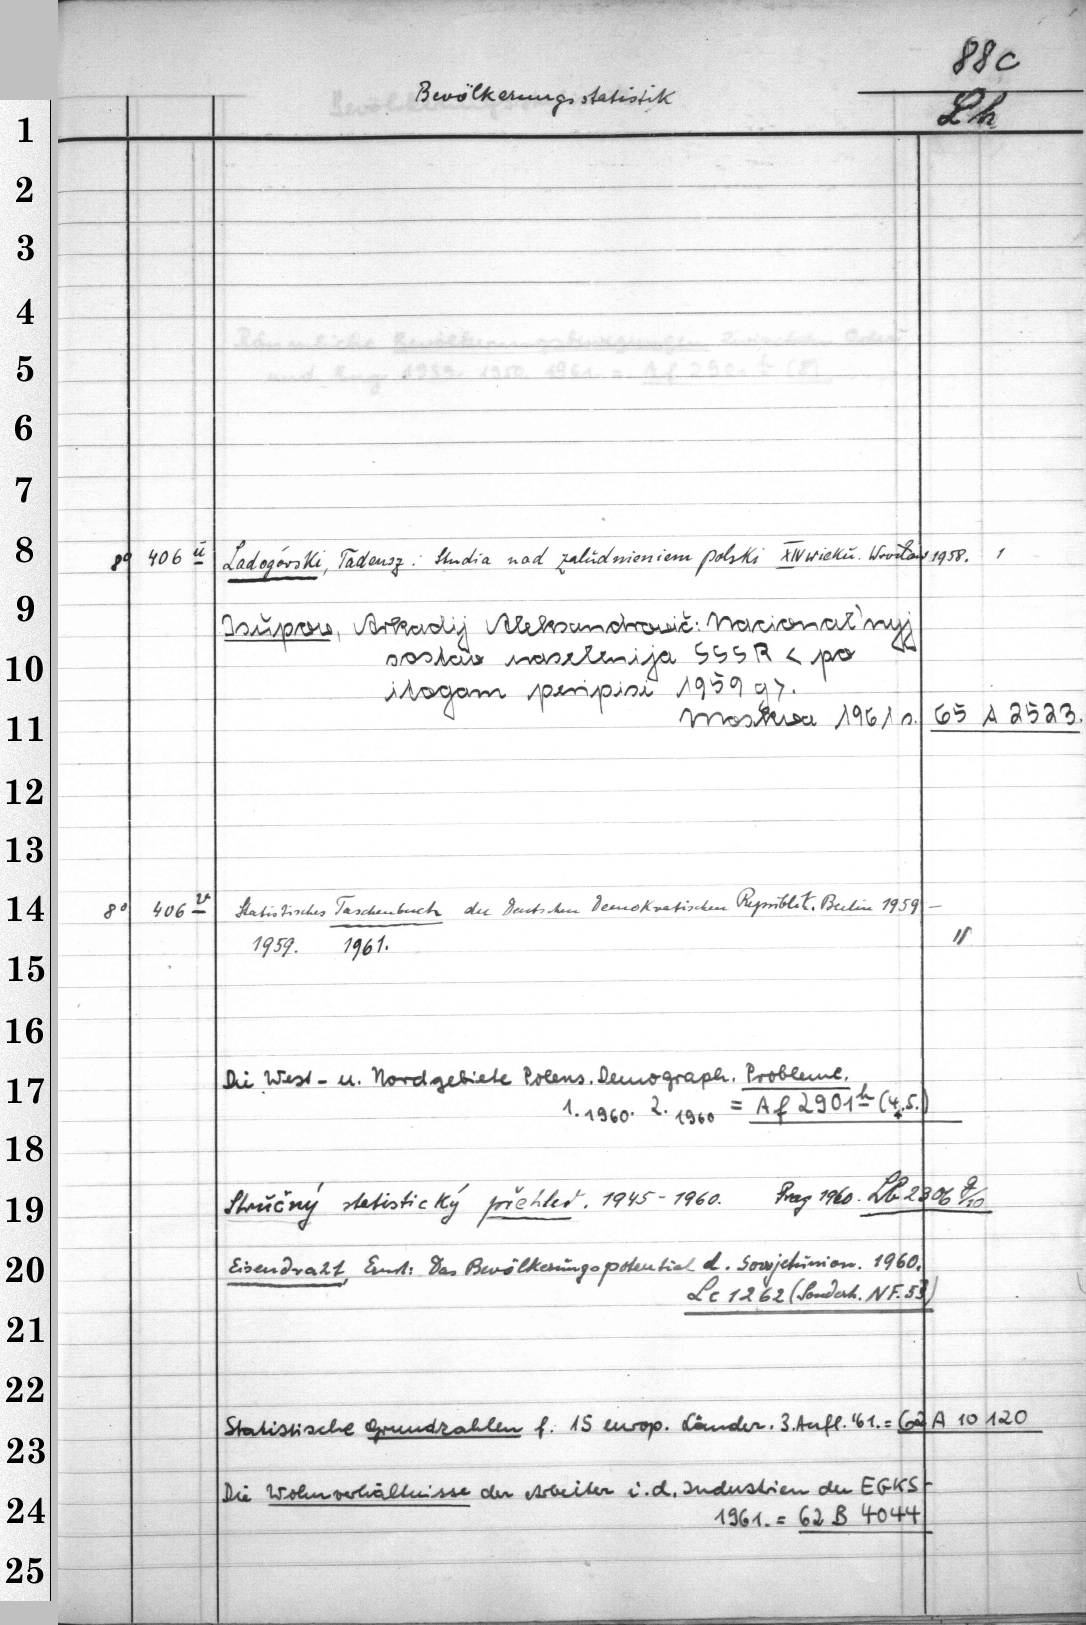 88c
Bevölkerungsstatistik
Lh
1
2
3
4
5
6
7
8
8° 406 ü Ladogórski, Tadeusz: Studia nad zaludnieniem polski XIV wieku. Wrocław 1958. 1
9
Isupow, Arkadij Aleksandrovič: Nacional'nyj
10
sostav naselenija SSSR < po
itogam peripisi 1959 g>.
11
Moskva 1961 s. 65 A 2523.
12
13
14
8° 406 v Statistisches Taschenbuch der Deutschen Demokratischen Republik. Berlin 1959 –
1959. 1961. 11
15
16
17
Die West- u. Nordgebiete Polens. Demograph. Probleme.
1. 1960. 2. 1960 = Af 2901 h (4,5.)
18
19
Stručný statistický přehled. 1945-1960. Prag 1960. Lb 2306 g/10
20
Eisendraht, Ernst: Das Bevölkerungspotential d. Sowjetunion. 1960.
Lc 1262 (Sonderh. NF. 53)
21
22
Statistische Grundzahlen f. 15 europ. Länder. 3. Aufl. '61. = 62 A 10 120
23
Die Wohnverhältnisse der Arbeiter i. d. Industrien der EGKS-
24
1961. = 62 B 4044
25